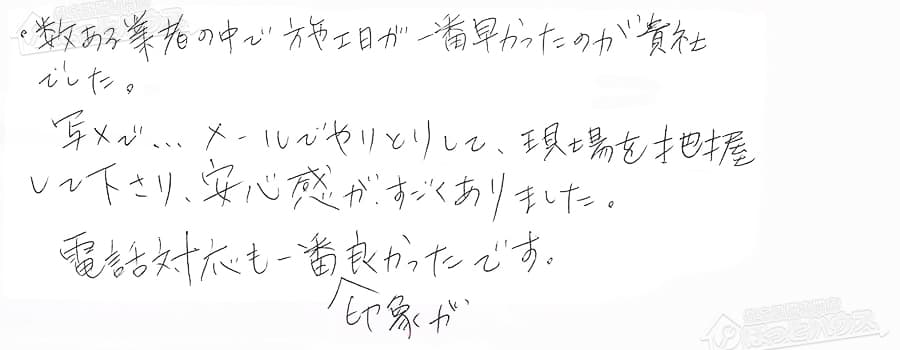 ・数ある業者の中で施工日が一番早かったのが貴社
でした。
写メで…メールでやりとりして、現場を把握
して下さり、安心感がすごくありました。
電話対応も一番良かったです。
印象が